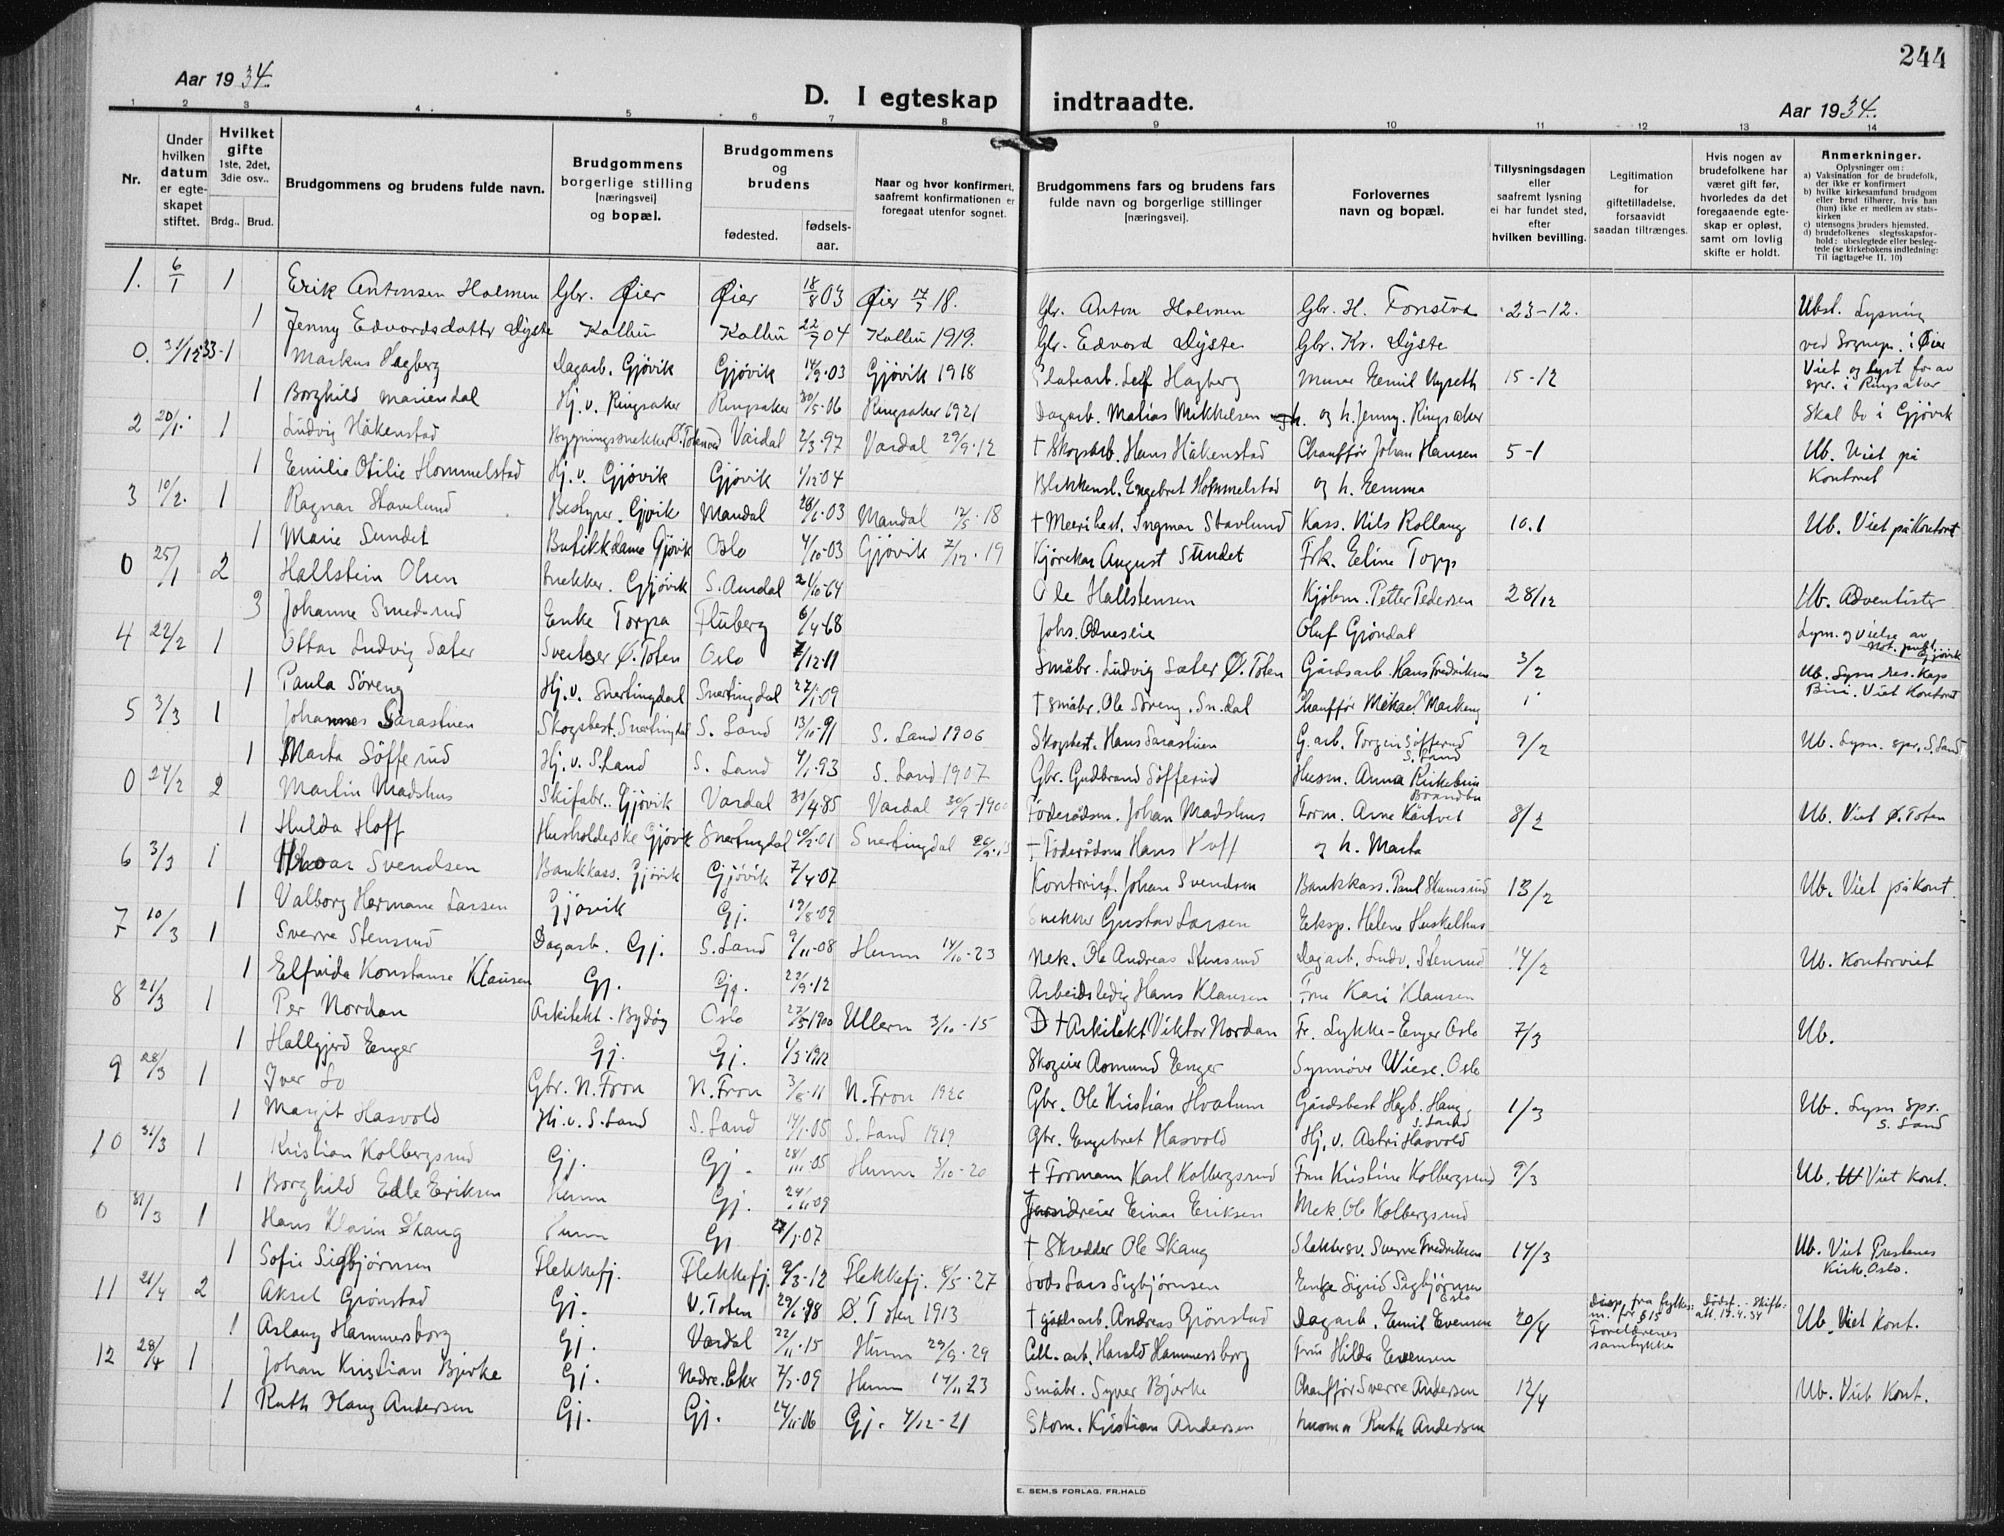 244
Aar 1934.
D. I egteskap indtraadte.
Aar 1934.
1 2 3 4 5 6 7 8 9 10 11 12 13 14
Nr.
Under hvilken datum er egteskapet stiftet.
Hvilket gifte 1ste, 2det, 3die osv.. Brdg.. Brud.
Brudgommens og brudens fulde navn.
Brudgommens borgerlige stilling [næringsvei] og bopæl.
Brudgommens og brudens fødested. fødselsaar.
Naar og hvor konfirmert, saafremt konfirmationen er foregaat utenfor sognet.
Brudgommens fars og brudens fars fulde navn og borgerlige stillinger [næringsvei].
Forlovernes navn og bopæl.
Tillysningsdagen eller saafremt lysning ei har fundet sted, efter hvilken bevilling.
Legitimation for giftetilladelse, forsaavidt saadan tiltrænges.
Hvis nogen av brudefolkene har været gift før, hvorledes da det foregaaende egteskap er opløst, samt om lovlig skifte er holdt.
Anmerkninger. Oplysninger om: a) Vaksination for de brudefolk, der ikke er konfirmert b) hvilke kirkesamfund brudgom eller brud tilhører, hvis han (hun) ikke er medlem av statskirken c) utensogns bruders hjemsted. d) brudefolkenes slegtsskapsforhold: ubeslegtede eller beslegtede (se kirkebokens indledning: Til iagttagelse II. 10)
1. 6/1 1 Erik Antonsen Holmen Gbr. Øier Øier 18/8 03 Øier 18. Gbr. Anton Holmen Gbr. H. Fonstad 23-12. Ubsl. Lysning
1 Jenny Edvardsdatter Dyste Kolbu Kolbu 22/9 04 Kolbu 1919. Gbr. Edvard Dyste Gbr. Kr. Dyste ved Sognepr. i Øier
0. 31/12 33 1 Markus Hagberg Dagarb. Gjøvik Gjøvik 03 Gjøvik 1918 Hagberg Murer Emil 15-12 Viet og lyst for av spr. i Ringsaker
1 Borghild Mariendal Hj.v. Ringsaker Ringsaker 30/5-06 Ringsaker 1921 Dagarb. Matias Mikkelsen og h. Jenny. Ringsaker Skal bo i Gjøvik
2 20/1 1 Ludvig Håkenstad Bygningssnekker Ø. Toten Vardal 2/3-97 Vardal 29/9-12 † Skogsarb. Hans Håkenstad Chauffør Johan Hansen 5-1 Ub. Viet på
1 Emilie Otilie Hommelstad Hj.v. Gjøvik Gjøvik 1/12 04 Blikkensl. Engebret Hommelstad og h. Emma Kontoret
3 10/2. 1 Ragnar Stavlund Bestyrer. Gjøvik Mandal 03 Mandal 12/5-18 † Meieribest. Ingmar Stavlund Kass. Nils Rollang 10.1 Ub. Viet på Kontoret
1 Marie Sundet Butikkdame Gjøvik Oslo 4/10-03 Gjøvik 7/12-19 Kjørekar August Sundet Frk. Eline Topp
0 25/1 2 Hallstein Olsen Snekker. Gjøvik S. Aurdal 21/10-64 Ole Hallstensen Kjøbm. Petter Pedersen 28/12 Ub. Adventister
3 Johanne Smedsrud Enke Torpa Fluberg 6/4-68 Johs. Odneseie Oluf Grøndal Lysn. og vielse av Not. publ. Gjøvik
4 22/2 1 Ottar Ludvig Sæter Sveitser Ø. Toten Oslo 7/12-11 Småbr. Ludvig Sæter Ø. Toten Gårdsarb. Hans Fredriksen 3/2 Ub. Lysn. res. kap.
1 Paula Søreng Hj.v. Snertingdal Snertingdal 27/1-09 † småbr. Ole Søreng. Sn.dal Chauffør Mikael Markeng Biri. Viet Kontoret
5 3/3 1 Johannes Sarastuen Skogsbest. Snertingdal S. Land 13/10-91 S. Land 1906 Skogsbest. Hans Sarastuen G.arb. Torgeir Søfferud S. Land 9/2 Ub. Lysn. spr. S. Land
1 Marta Søfferud Hj.v. S. Land S. Land 4/1-93 S. Land 1907 Gbr. Gudbrand Søfferud Husm. Anna Rikebu Brandbu
0 24/2 2 Martin Madshus Skifabr. Gjøvik Vardal 30/4 85 Vardal 30/9-1900 Føderådsm. Johan Madshus Form. Arne Kårtvet 8/2 Ub. Viet Ø. Toten
1 Hulda Hoff Husholderske Gjøvik Snertingdal -01 Snertingdal † Føderådsm Hans Hoff og h. Marta
6 3/3 1 Svendsen Bankkass. Gjøvik Gjøvik 7/4-07 Kontorist. Johan Svendsen Bankkass. Paul 13/2 Ub. Viet på kont.
1 Valborg Hermane Larsen Gjøvik Gj. 19/8-09 Snekker Gustav Larsen Eksp. Helene Huskelhus
7 10/3 1 Sverre Stensrud Dagarb. Gj. S. Land 9/11-08 Hunn 14/10-23 Mek. Ole Andreas Stensrud Dagarb. Ludv. Stensrud 14/2 Ub. Kontorviet
1 Elfrida Konstanse Klausen Gj. Gj. 22/9-12 Arbeidsledig Hans Klausen Fru Kari Klausen
8 21/3 1 Per Nordan Arkitekt. Bygdøy Oslo 27/5-1900 Ullern 3/10-15 † Arkitekt Viktor Nordan Fr. Lykke-Enger Oslo 7/3 Ub.
1 Hallgjerd Enger Gj. Gj. 1/3-1912 Skogeier Aomund Enger Synnøve Wiese. Oslo
9 28/3 1 Iver Lo Gbr. N. Fron N. Fron 3/8-11 N. Fron 1926 Gbr. Ole Kristian Gårdsbest Hagb. Haug. S. Land 1/3 Ub. Lysn spr. S. Land
1 Margit Hasvold Hj.v. S. Land S. Land 14/1-05 S. Land 1919 Gbr. Engebret Hasvold Hj.v. Astri Hasvold
10 31/3 1 Kristian Kolbergsrud Gj. Gj. 05 Hunn 3/10-20 † Formann Karl Kolbergsrud Fru Kristine Kolbergsrud 9/3 Ub. Viet kont.
1 Borghild Edle Eriksen Hunn Gj. 09 Einar Eriksen Mek. Ole Kolbergsrud
0 31/3 1 Hans Klarin Skaug Hunn Gj 07 † Skredder Ole Skaug Slaktersv. Sverre Fredriksen 14/3 Ub. Viet Prestenes
1 Sofie Sigbjørnsen Flekkefj. Flekkefj. 9/3-12 Flekkefj. 8/5-27 Lods Lars Sigbjørnsen Enke Sigrid Sigbjørnsen Oslo Kirke. Oslo.
11 21/4 2 Aksel Grønstad Gj. V. Toten 29/1-98 Ø. Toten 1913 † gårdsarb. Andreas Grønstad Dagarb. Emil Evensen 20/4 Disp. fra fylkesm. for § 15 Foreldrenes samtykke Død. - Skifteatt. 19.4.34 Ub. Viet kont.
1 Aslaug Hammersborg Gj. Vardal 22/11-15 Hunn 29/9-29 Cell.-arb. Harald Hammersborg Fru Hilda Evensen
12 28/4 1 Johan Kristian Bjerke Gj. Nedre Eker 7/7-09 Hunn 14/11 23 Småbr. Syver Bjerke Chauffør Sverre Andersen 12/4 Ub. Viet kont.
1 Ruth Haug Andersen Gj. Gj. 24/11-06 Gj. 4/12-21 Skom. Kristian Andersen Ruth Andersen
E. SEM,S FORLAG, FR.HALD